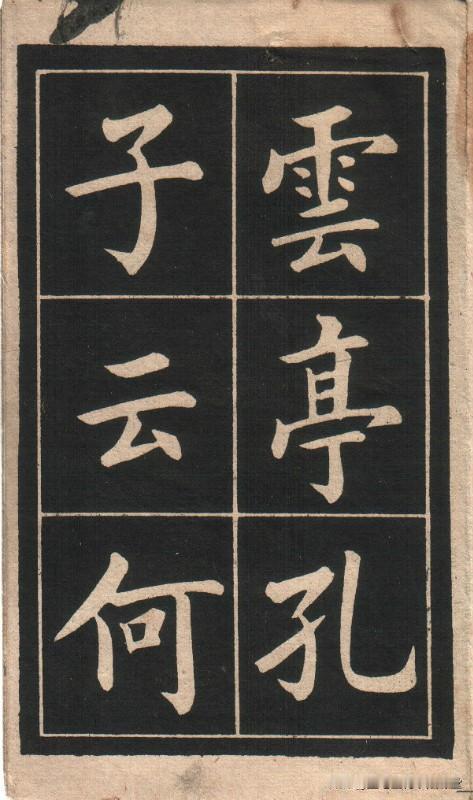 雲亭孔
子云何